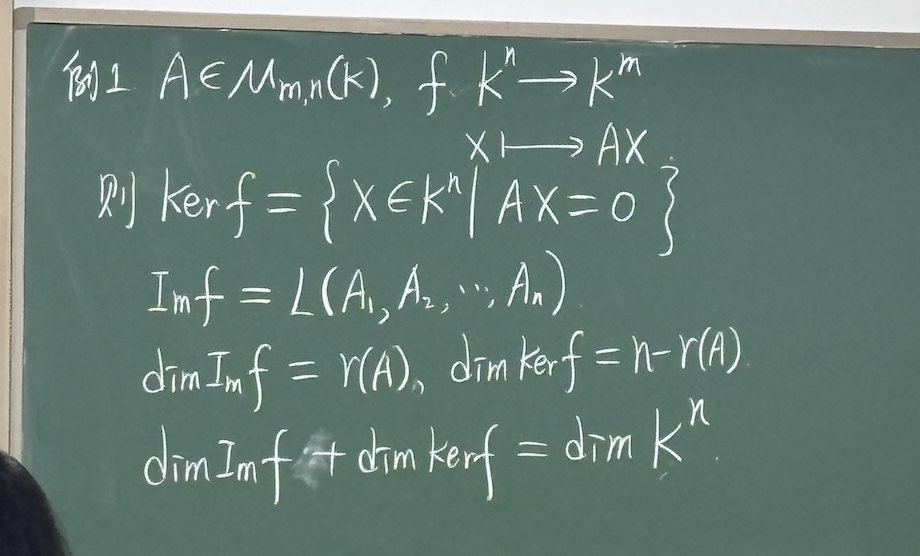 例1 A∈M_{m,n}(K), f K^n→K^m
X↦AX.
则 Ker f = {X∈K^n | AX=0}
Im f = L(A_1, A_2, ⋯, A_n)
dim Im f = r(A), dim Ker f = n-r(A)
dim Im f + dim ker f = dim K^n.